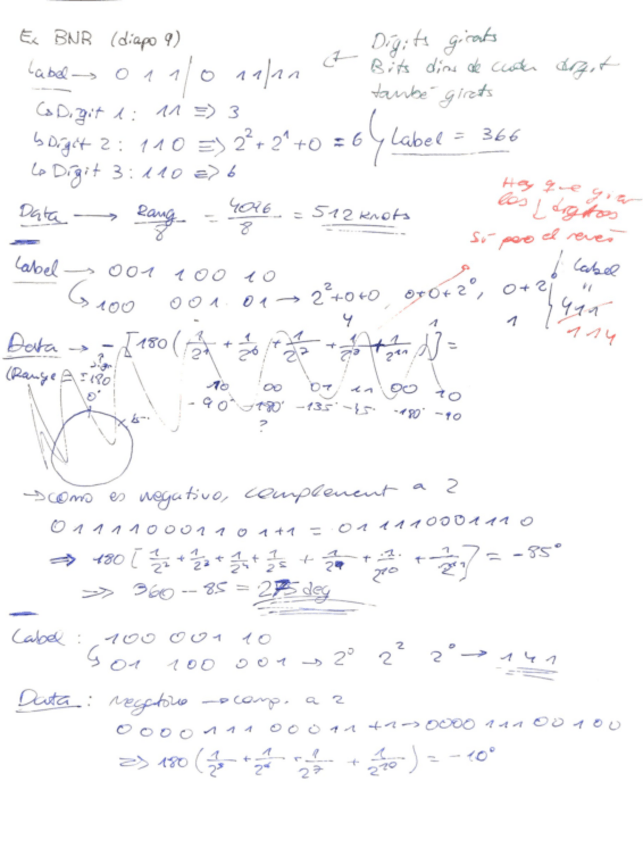 Ex BNR (diapo 9)
Label → 0 1 1 | 0 1 1 | 1 1
Digits girats
Bits dins de cada dígit
també girats
↳ Dígit 1: 11 => 3
↳ Dígit 2: 110 => 2² + 2¹ + 0 = 6
↳ Dígit 3: 110 => 6
Label = 366
Data → Rang/8 = 4096/8 = 512 knots
Hay que girar
los dígitos
Sí pero al revés
Label → 001 100 10
↳ 100 001 01 → 2² + 0 + 0, 0 + 0 + 2⁰, 0 + 2⁰
4 1 1
Label
"
411
114
Data → - [180 (1/2¹ + 1/2⁶ + 1/2⁷ + 1/2⁸ + 1/2¹¹)] =
(Range = ±180
0°
10 00 01 11 00 10
-90° -180° -135° -45° -180° -90
?
→ como es negativo, complement a 2
0 1 1 1 1 0 0 0 1 1 0 1 + 1 = 0 1 1 1 1 0 0 0 1 1 1 0
=> 180 [1/2² + 1/2³ + 1/2⁴ + 1/2⁵ + 1/2⁹ + 1/2¹⁰ + 1/2¹¹] = -85°
=> 360 - 85 = 275 deg
Label: 100 001 10
↳ 01 100 001 → 2⁰ 2² 2⁰ → 141
Data: negativo → comp. a 2
0 0 0 0 1 1 1 0 0 0 1 1 + 1 → 0 0 0 0 1 1 1 0 0 1 0 0
=> 180 (1/2⁵ + 1/2⁶ + 1/2⁷ + 1/2¹⁰) = -10°